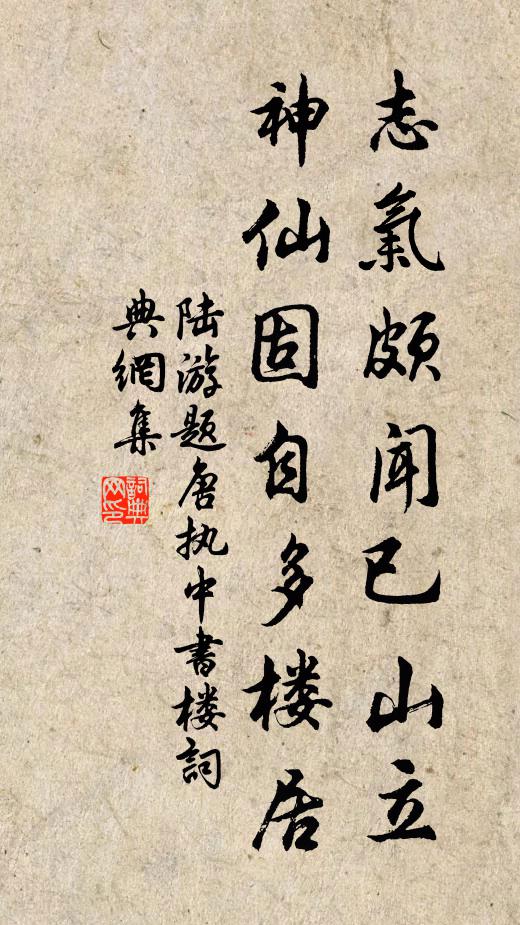 志氣頗闻已山立
神仙固自多楼居
陆游题唐执中書楼詞
典網集
詞典網印